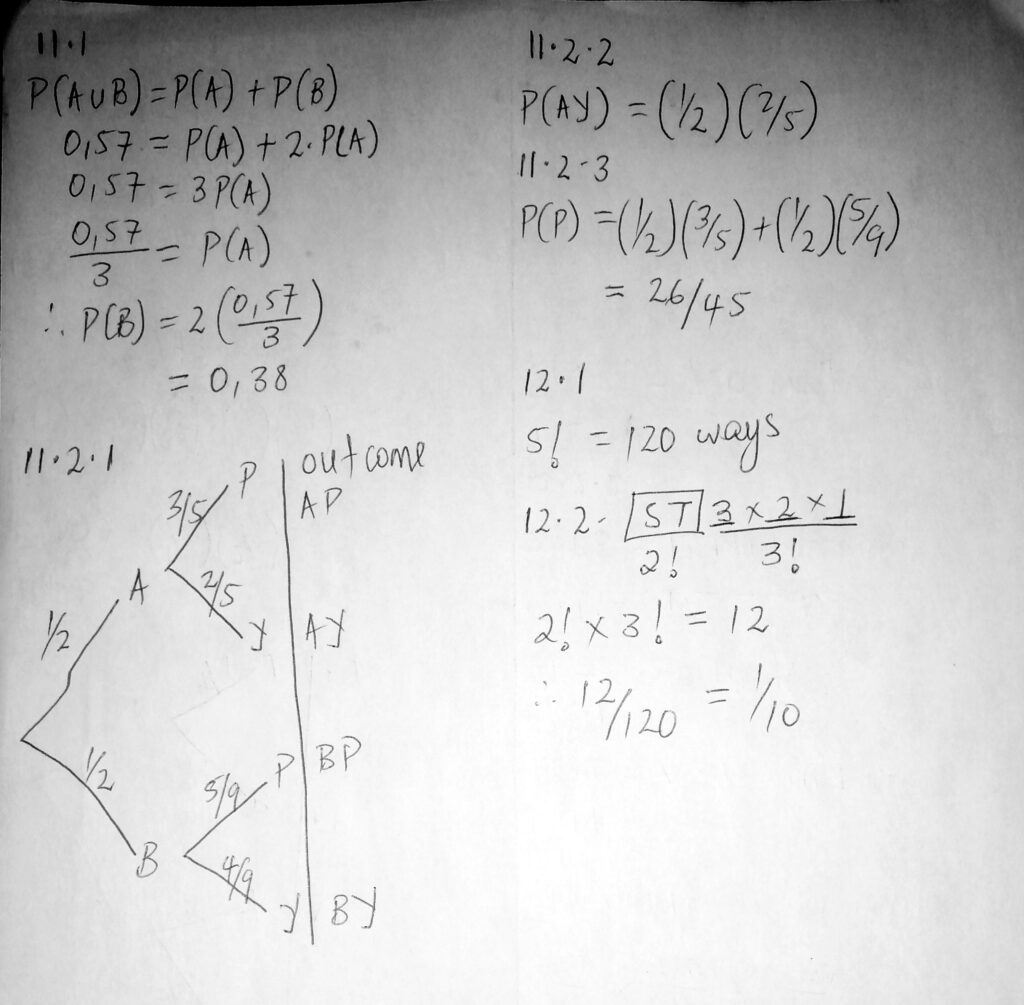 11.1
P(A∪B)=P(A)+P(B)
0,57 = P(A)+2.P(A)
0,57 = 3P(A)
0,57/3 = P(A)
∴ P(B) = 2(0,57/3)
= 0,38
11.2.1
outcome
3/5 P AP
1/2 A 2/5 y Ay
1/2 B 5/9 P BP
4/9 y By
11.2.2
P(Ay) = (1/2)(2/5)
11.2.3
P(P) = (1/2)(3/5)+(1/2)(5/9)
= 26/45
12.1
5! = 120 ways
12.2. ST 3×2×1
2! 3!
2! × 3! = 12
∴ 12/120 = 1/10